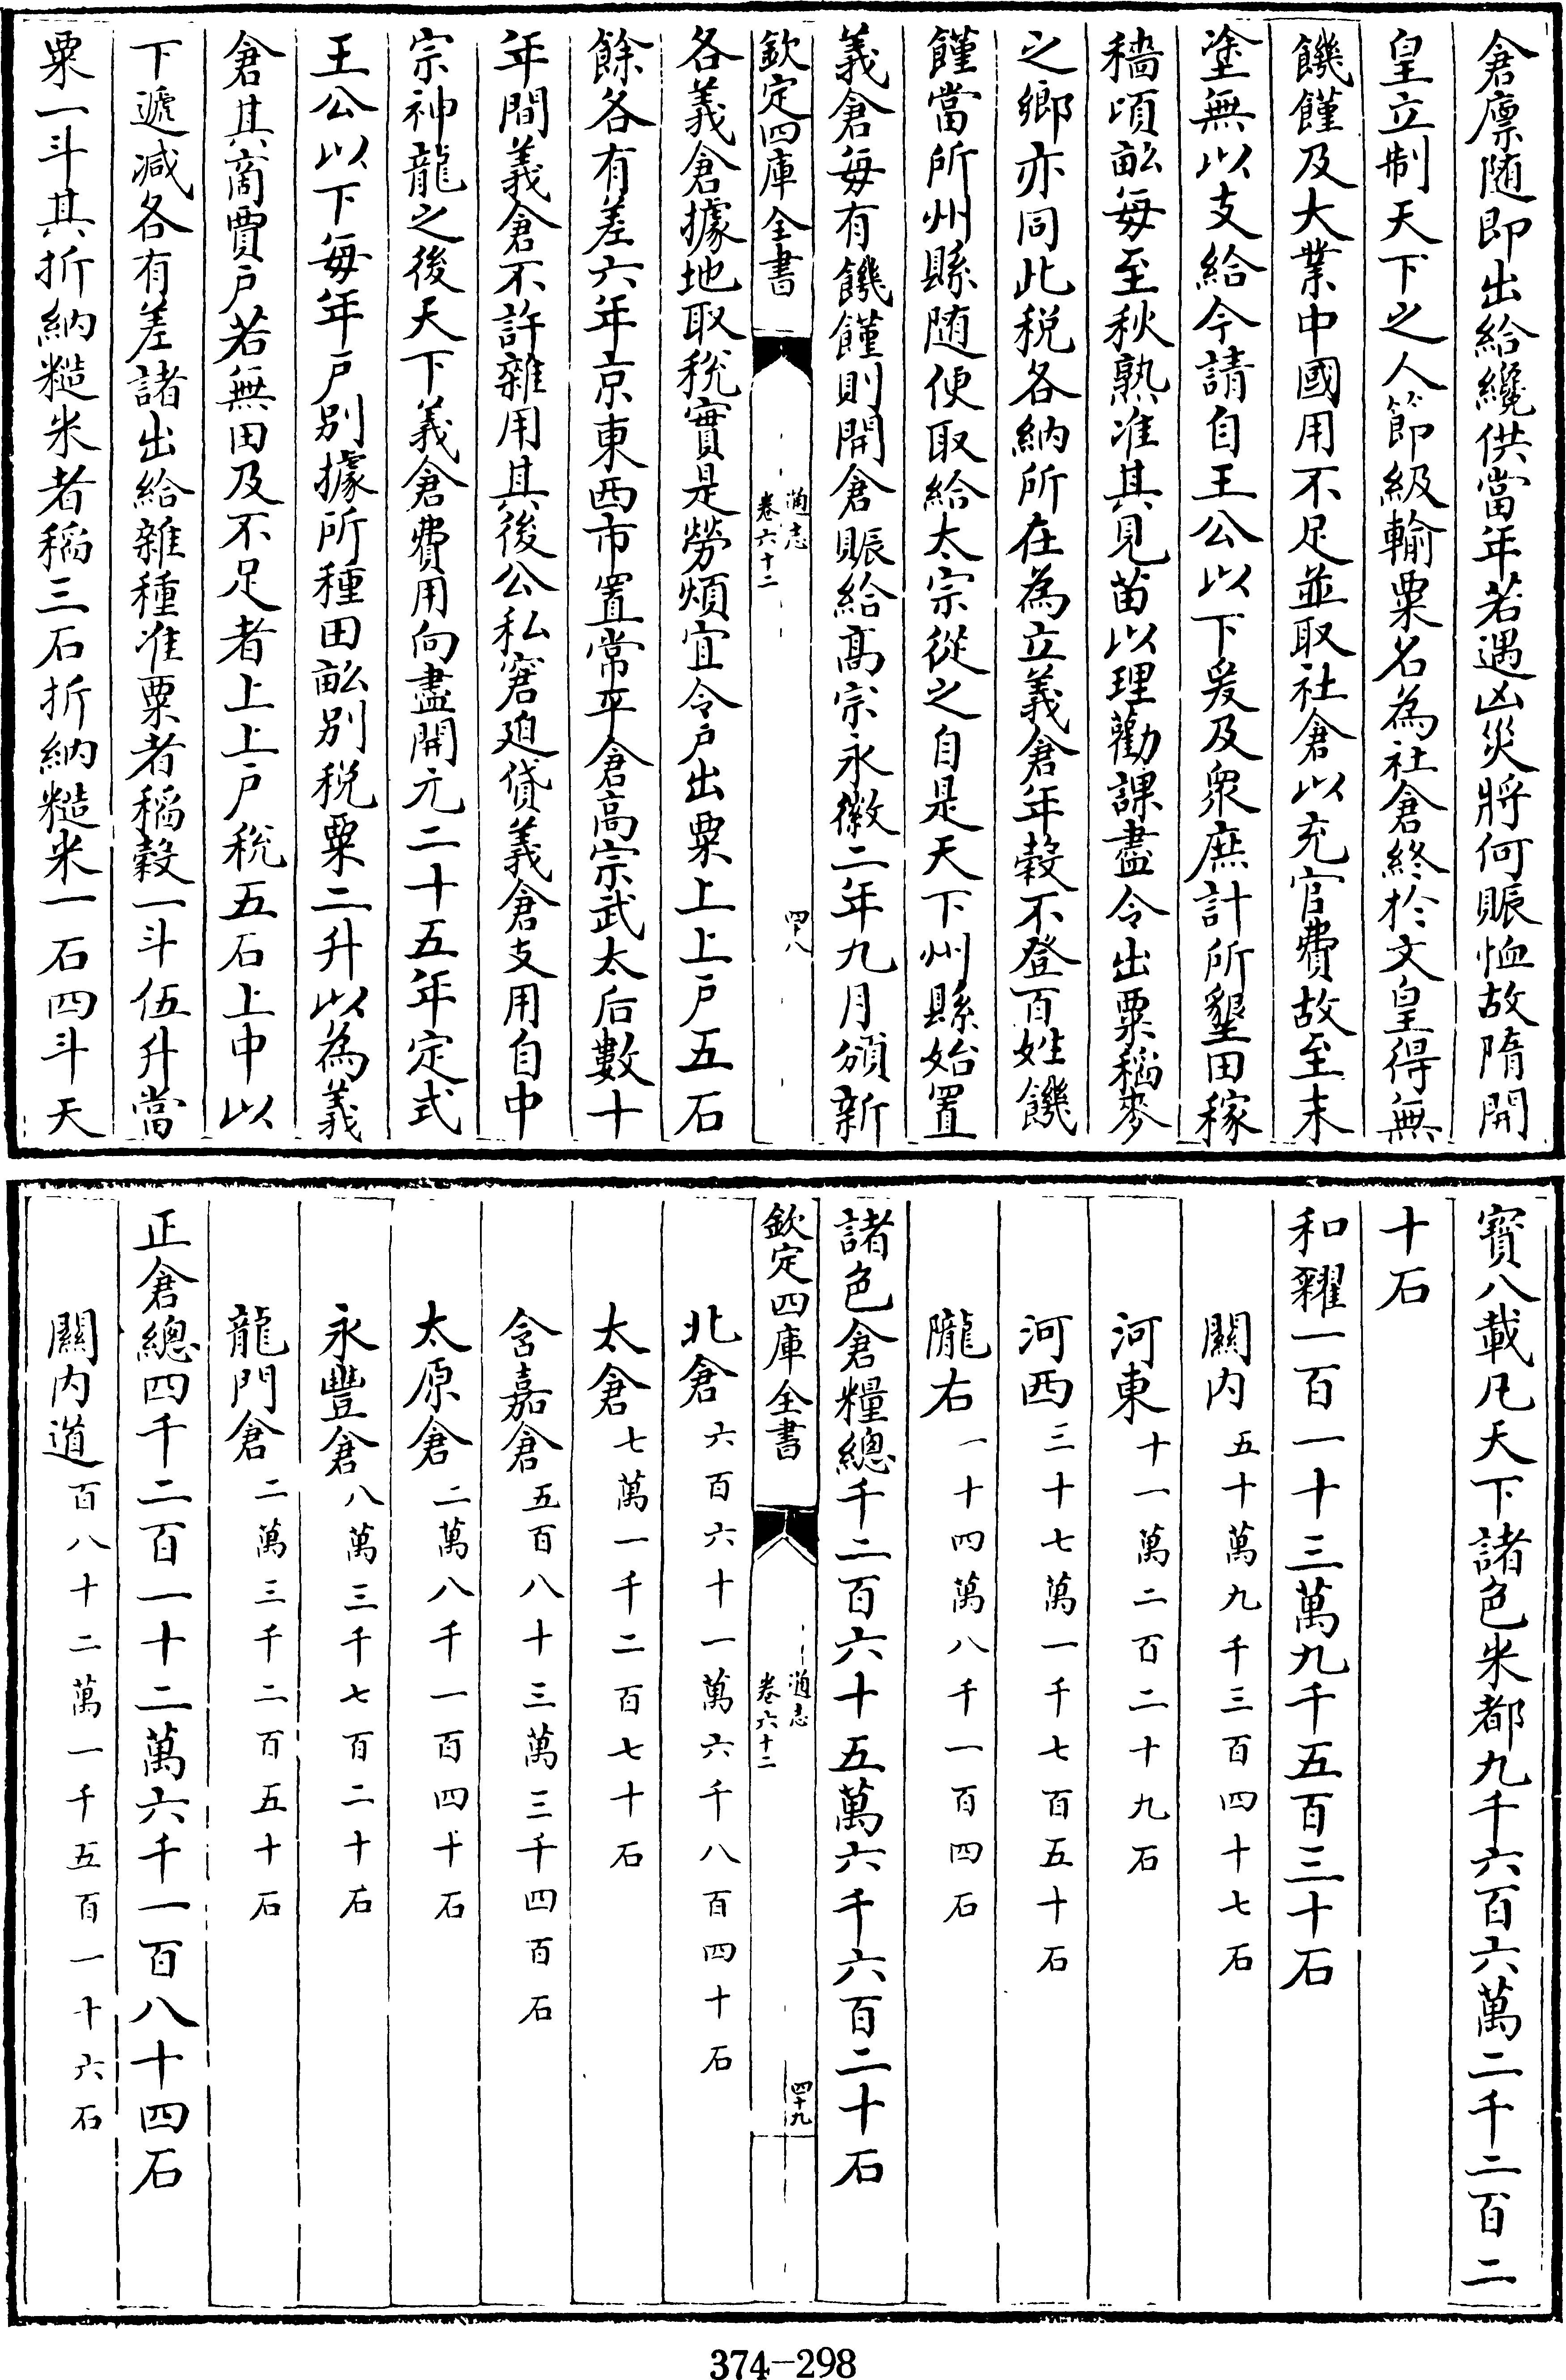 倉廪随即出給纔供當年若遇凶災將何賑恤故隋開
皇立制天下之人節級輸粟名為社倉終於文皇得無
饑饉及大業中國用不足並取社倉以充官費故至末
塗無以支給今請自王公以下爰及衆庶計所墾田稼
穡頃畝毎至秋熟准其見苗以理勸課盡令出粟稻麥
之鄉亦同此税各納所在為立義倉年榖不登百姓饑
饉當所州縣随便取給太宗從之自是天下州縣始置
義倉毎有饑饉則開倉賑給髙宗永徽二年九月頒新
欽定四庫全書
通志
卷六十二
四十八
各義倉據地取税實是勞煩宜令戸出粟上上戸五石
餘各有差六年京東西市置常平倉高宗武太后數十
年間義倉不許雜用其後公私窘廹貸義倉支用自中
宗神龍之後天下義倉費用向盡開元二十五年定式
王公以下毎年戸别據所種田畝别税粟二升以為義
倉其商賈戸若無田及不足者上上戸税五石上中以
下遞减各有差諸出給雜種准粟者稻榖一斗伍升當
粟一斗其折納糙米者稻三石折納糙米一石四斗天
寳八載凡天下諸色米都九千六百六萬二千二百二
十石
和糴一百一十三萬九千五百三十石
關内五十萬九千三百四十七石
河東十一萬二百二十九石
河西三十七萬一千七百五十石
隴右一十四萬八千一百四石
諸色倉糧總千二百六十五萬六千六百二十石
欽定四庫全書
通志
卷六十二
四十九
北倉六百六十一萬六千八百四十石
太倉七萬一千二百七十石
含嘉倉五百八十三萬三千四百石
太原倉二萬八千一百四十石
永豐倉八萬三千七百二十石
龍門倉二萬三千二百五十石
正倉總四千二百一十二萬六千一百八十四石
關内道百八十二萬一千五百一十六石
374-298